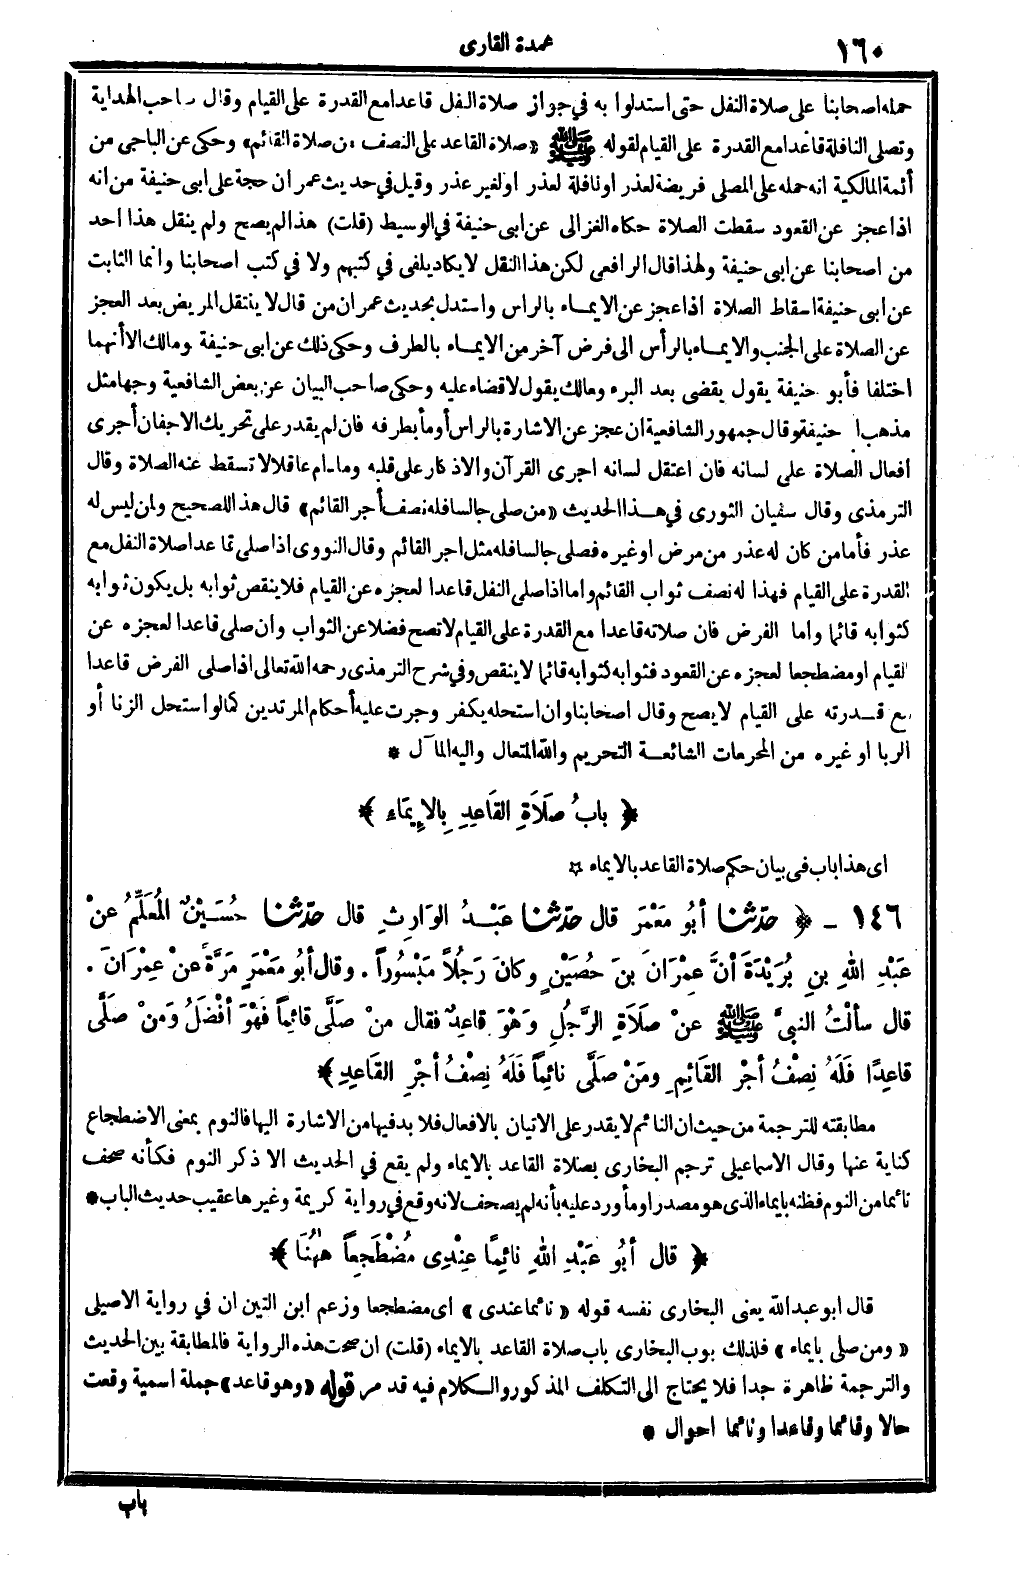 ١٦٠
عمدة القارى
حمله اصحابنا على صلاة النفل حتى استدلوا به في جواز صلاة النفل قاعدا مع القدرة على القيام وقال صاحب الهداية
وتصلى النافلة قاعدا مع القدرة على القيام لقوله ﷺ «صلاة القاعد على النصف من صلاة القائم» وحكى عن الباجى من
أئمة المالكية انه حمله على المصلى فريضة لعذر او نافلة لعذر او لغير عذر وقيل في حديث عمران حجة على ابى حنيفة من انه
اذا عجز عن القعود سقطت الصلاة حكاه الغزالى عن ابى حنيفة في الوسيط (قلت) هذا لم يصح ولم ينقل هذا احد
من اصحابنا عن ابى حنيفة ولهذا قال الرافعى لكن هذا النقل لا يكاد يلفى في كتبهم ولا في كتب اصحابنا وانما الثابت
عن ابى حنيفة اسقاط الصلاة اذا عجز عن الايماء بالراس واستدل بحديث عمران من قال لا ينتقل المريض بعد العجز
عن الصلاة على الجنب والايماء بالرأس الى فرض آخر من الايماء بالطرف وحكى ذلك عن ابى حنيفة ومالك الا أنهما
اختلفا فأبو حنيفة يقول يقضى بعد البرء ومالك يقول لا قضاء عليه وحكى صاحب البيان عن بعض الشافعية وجها مثل
مذهب ابى حنيفة وقال جمهور الشافعية ان عجز عن الاشارة بالراس أومأ بطرفه فان لم يقدر على تحريك الاجفان أجرى
افعال الصلاة على لسانه فان اعتقل لسانه اجرى القرآن والاذكار على قلبه وما دام عاقلا لا تسقط عنه الصلاة وقال
الترمذى وقال سفيان الثورى في هذا الحديث «من صلى جالسا فله نصف أجر القائم» قال هذا للصحيح ولمن ليس له
عذر فأما من كان له عذر من مرض او غيره فصلى جالسا فله مثل اجر القائم وقال النووى اذا صلى قاعدا صلاة النفل مع
القدرة على القيام فهذا له نصف ثواب القائم واما اذا صلى النفل قاعدا لعجزه عن القيام فلا ينقص ثوابه بل يكون ثوابه
كثوابه قائما واما الفرض فان صلاته قاعدا مع القدرة على القيام لا تصح فضلا عن الثواب وان صلى قاعدا لعجزه عن
القيام او مضطجعا لعجزه عن القعود فثوابه كثوابه قائما لا ينقص وفي شرح الترمذى رحمه الله تعالى اذا صلى الفرض قاعدا
مع قدرته على القيام لا يصح وقال اصحابنا وان استحله يكفر وجرت عليه أحكام المرتدين كما لو استحل الزنا أو
الربا او غيره من المحرمات الشائعة التحريم والله المتعال واليه المآل *
﴿ بابُ صَلَاةِ القَاعِدِ بِالإِيمَاءِ ﴾
اى هذا باب في بيان حكم صلاة القاعد بالايماء ☆
١٤٦ - ﴿ حَدّثنا أبُو مَعْمَرٍ قال حَدّثنا عَبْدُ الوَارِثِ قال حَدّثنا حُسَيْنٌ المُعَلِّمُ عنْ
عَبْدِ اللهِ بنِ بُرَيْدَةَ أنَّ عِمْرَانَ بنَ حُصَيْنٍ وكانَ رَجُلاً مَبْسُوراً . وقال أبُو مَعْمَرٍ مَرَّةً عنْ عِمْرَانَ .
قال سألْتُ النبيَّ ﷺ عنْ صَلَاةِ الرَّجُلِ وَهْوَ قاعِدٌ فقال منْ صَلَّى قائِماً فَهْوَ أفْضَلُ وَمنْ صَلَّى
قاعِدًا فَلَهُ نِصْفُ أجْرِ القَائِمِ ومَنْ صَلَّى نائِماً فَلَهُ نِصْفُ أجْرِ القاعِدِ ﴾
مطابقته للترجمة من حيث ان النائم لا يقدر على الاتيان بالافعال فلا بد فيها من الاشارة اليها فالنوم بمعنى الاضطجاع
كناية عنها وقال الاسماعيلى ترجم البخارى بصلاة القاعد بالايماء ولم يقع في الحديث الا ذكر النوم فكأنه صحف
نائما من النوم فظنه بايماء الذى هو مصدر اومأ ورد عليه بأنه لم يصحف لانه وقع في رواية كريمة وغيرها عقيب حديث الباب *
﴿ قال أبُو عَبْدِ اللهِ نائِمًا عِنْدِى مُضْطَجِعاً هٰهُنَا ﴾
قال ابو عبد الله يعنى البخارى نفسه قوله «نائما عندى» اى مضطجعا وزعم ابن التين ان في رواية الاصيلى
«ومن صلى بايماء» فلذلك بوب البخارى باب صلاة القاعد بالايماء (قلت) ان صحت هذه الرواية فالمطابقة بين الحديث
والترجمة ظاهرة جدا فلا يحتاج الى التكلف المذكور والكلام فيه قد مر قوله «وهو قاعد» جملة اسمية وقعت
حالا وقائما وقاعدا ونائما احوال *
باب